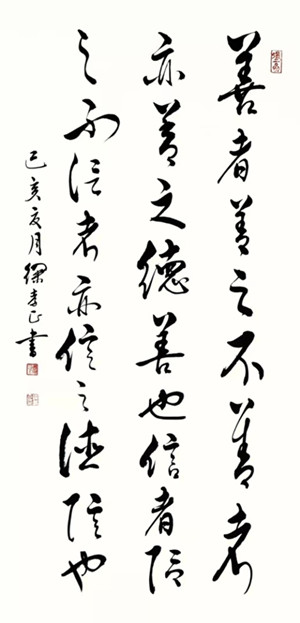 善者善之不善者
亦善之德善也信者信
之不信者亦信之德信也
己亥夏月 正書